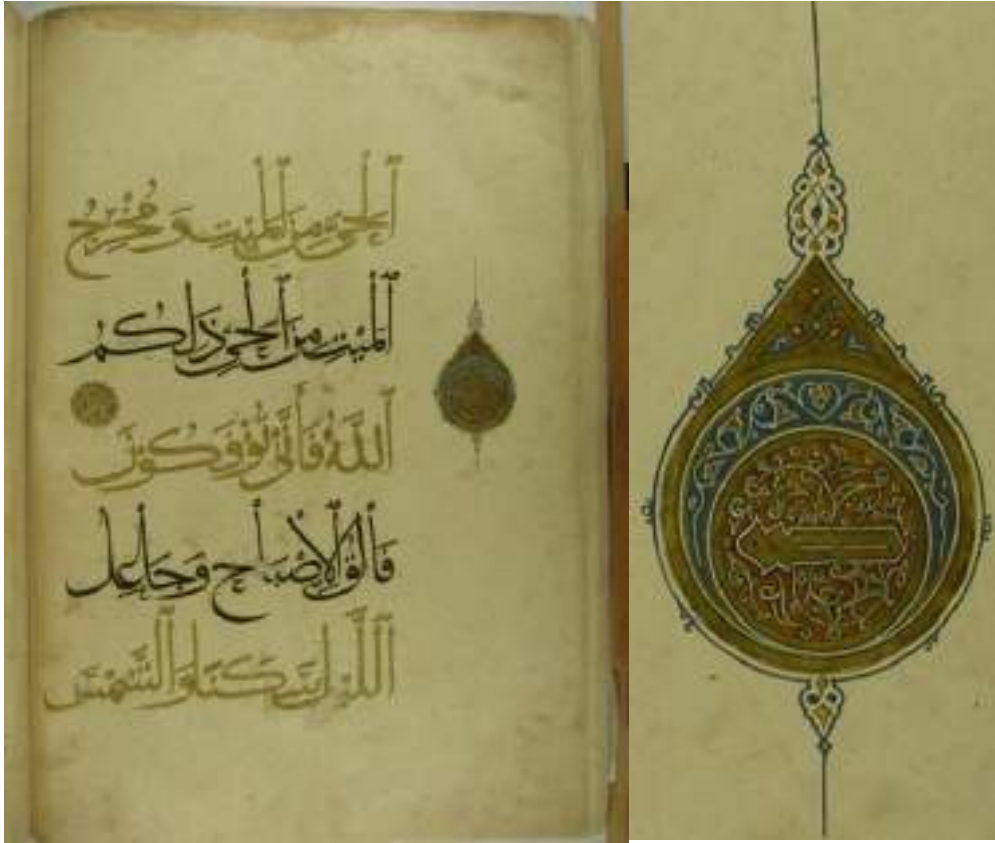 ٱلْحَىِّ مِنَ ٱلْمَيِّتِ وَ مُخْرِجُ
ٱلْمَيِّتِ مِنَ ٱلْحَىِّ ذَٰلِكُمُ
ٱللَّهُ فَأَنَّىٰ تُؤْفَكُونَ
فَالِقُ ٱلْإِصْبَاحِ وَجَاعِلُ
ٱللَّيْلِ سَكَنًا وَٱلشَّمْسَ